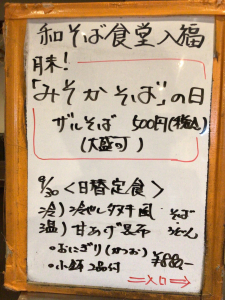 和そば食堂入福
月末!
「みそかそば」の日
ザルそば 500円(税込)
(大盛可)
9/30 <日替定食>
冷)冷やしタヌキ風 そば
温)甘あげ昆布 うどん
・おにぎり(かつお)
・小鉢2品付 ¥880-
入口⇒